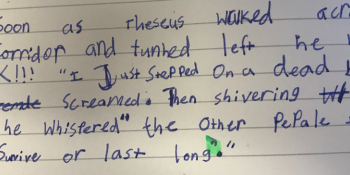 Soon as Theseus walked acr
corridor and turned left he
K!!! "I Just stepped on a dead
screamed. Then shivering
he whispered" the other PePale
Survive or last long."